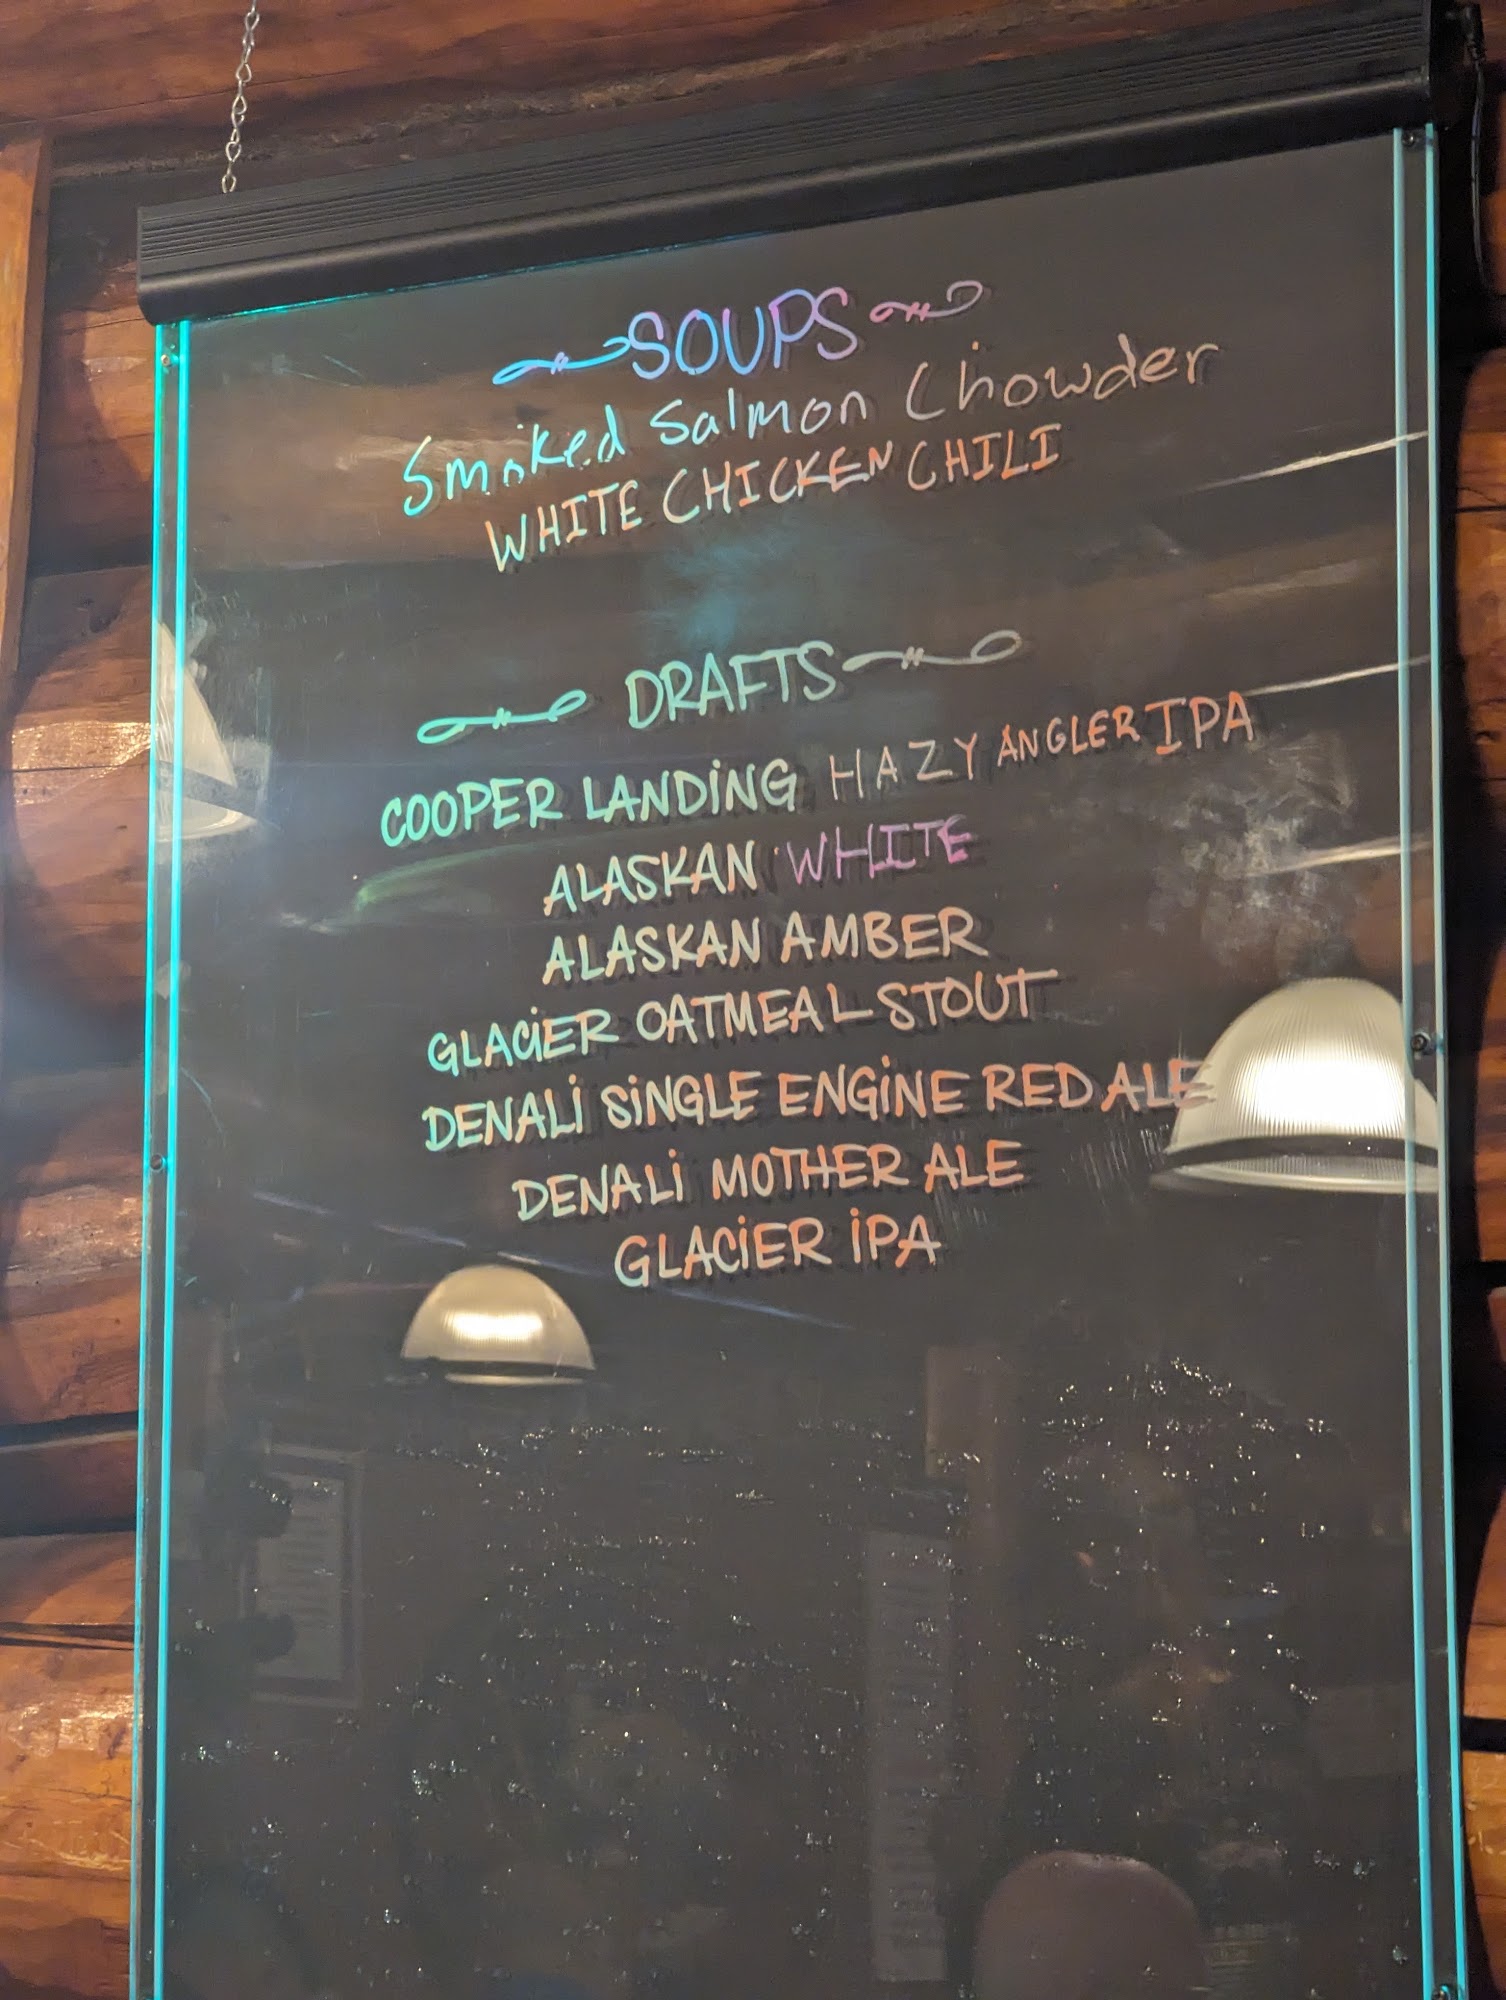 SOUPS
Smoked Salmon Chowder
WHITE CHICKEN CHILI
DRAFTS
COOPER LANDING HAZY ANGLER IPA
ALASKAN WHITE
ALASKAN AMBER
GLACIER OATMEAL STOUT
DENALI SINGLE ENGINE RED ALE
DENALI MOTHER ALE
GLACIER IPA